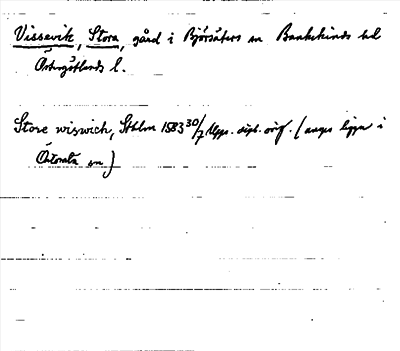 Vissevik, Stora, gård i Björsäters sn Bankekinds hd
Östergötlands l.
Store wiswich, Sthlm 1583 30/7 Upps. dipl. orig. (anges ligga i
Östorata sn)